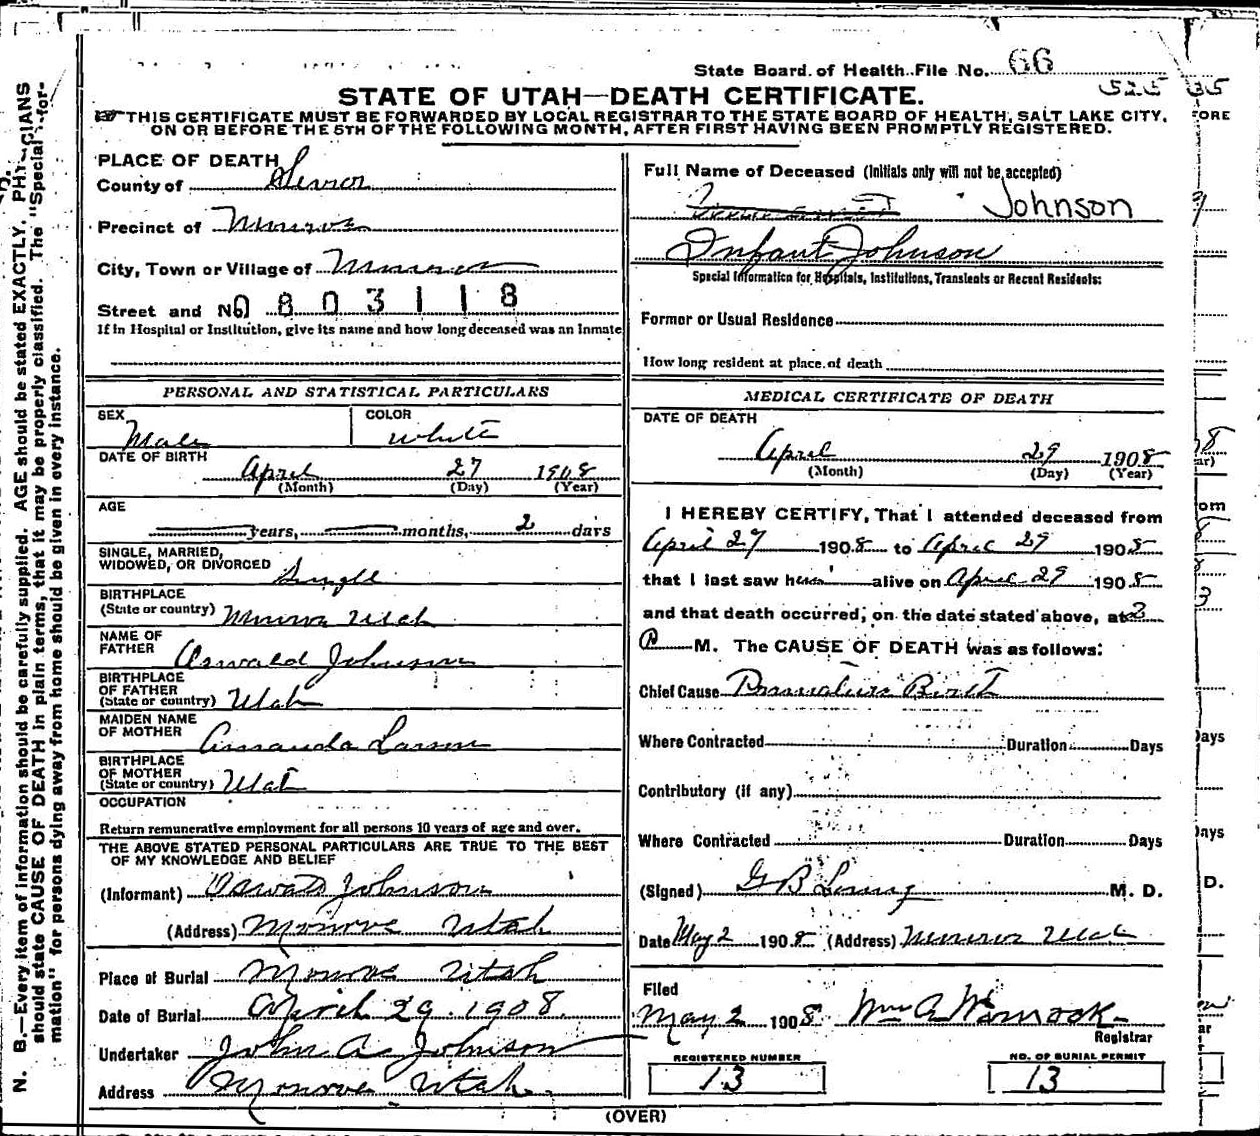 State Board of Health File No. 66
525
35
STATE OF UTAH—DEATH CERTIFICATE.
THIS CERTIFICATE MUST BE FORWARDED BY LOCAL REGISTRAR TO THE STATE BOARD OF HEALTH, SALT LAKE CITY,
ON OR BEFORE THE 5TH OF THE FOLLOWING MONTH, AFTER FIRST HAVING BEEN PROMPTLY REGISTERED.
PLACE OF DEATH
County of Sevier
Precinct of Monroe
City, Town or Village of Monroe
Street and No. 0803118
If in Hospital or Institution, give its name and how long deceased was an Inmate
PERSONAL AND STATISTICAL PARTICULARS
SEX COLOR
Male White
DATE OF BIRTH
April 27 1908
(Month) (Day) (Year)
AGE
years, months, 2 days
SINGLE, MARRIED,
WIDOWED, OR DIVORCED Single
BIRTHPLACE
(State or country) Monroe Utah
NAME OF
FATHER Oswald Johnson
BIRTHPLACE
OF FATHER
(State or country) Utah
MAIDEN NAME
OF MOTHER Amanda Larsen
BIRTHPLACE
OF MOTHER
(State or country) Utah
OCCUPATION
Return remunerative employment for all persons 10 years of age and over.
THE ABOVE STATED PERSONAL PARTICULARS ARE TRUE TO THE BEST
OF MY KNOWLEDGE AND BELIEF
(Informant) Oswald Johnson
(Address) Monroe Utah
Place of Burial Monroe Utah
Date of Burial April 29. 1908.
Undertaker John A. Johnson
Address Monroe Utah.
Full Name of Deceased (Initials only will not be accepted)
Johnson
Infant Johnson
Special Information for Hospitals, Institutions, Transients or Recent Residents:
Former or Usual Residence
How long resident at place of death
MEDICAL CERTIFICATE OF DEATH
DATE OF DEATH
April 29 1908
(Month) (Day) (Year)
I HEREBY CERTIFY, That I attended deceased from
April 27 1908 to April 29 1908
that I last saw h alive on April 29 1908
and that death occurred, on the date stated above, at 3
A M. The CAUSE OF DEATH was as follows:
Chief Cause Premature Birth
Where Contracted Duration Days
Contributory (if any)
Where Contracted Duration Days
(Signed) G B M. D.
Date May 2 1908 (Address) Monroe Utah
Filed
May 2 1908 Wm A Warnock
Registrar
REGISTERED NUMBER
13
NO. OF BURIAL PERMIT
13
(OVER)
N. B.—Every item of information should be carefully supplied. AGE should be stated EXACTLY. PHYSICIANS
should state CAUSE OF DEATH in plain terms, that it may be properly classified. The "Special Infor-
mation" for persons dying away from home should be given in every instance.